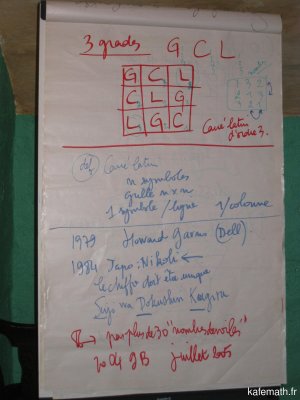 3 grades G C L
G C L
C L G
L G C
Carré latin
d'ordre 3.
1 3 2
3 2 1
2 1 3
def Carré latin
n symboles
grille n x n
1 symbole / ligne 1/colonne
1979 Howard Garns (Dell).
1984 Japo: Nikoli
le chiffre doit être unique
Suji wa Dokushin Kagiru
pas plus de 30 "nombres dévoilés"
2004 GB juillet 2005
kafemath.fr